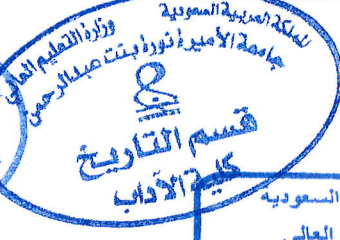 المملكة العربية السعودية
وزارة التعليم العالي
جامعة الأميرة نورة بنت عبدالرحمن
قسم التاريخ
كلية الآداب
السعوديه
العالي